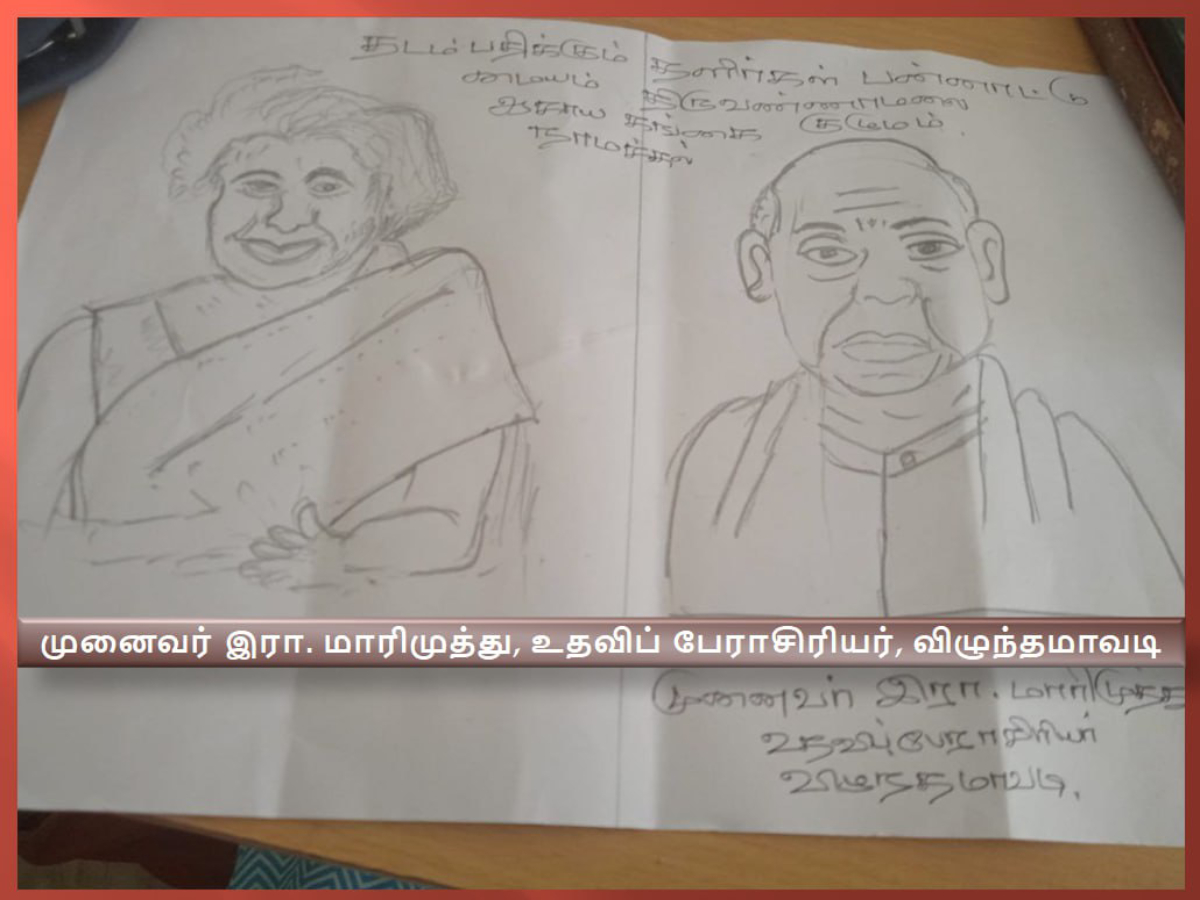 தடம் பதிக்கும் தளிர்கள் பன்னாட்டு
மையம் திருவண்ணாமலை
ஆகாய கங்கை குடும்பம்.
நாமக்கல்
முனைவர் இரா. மாரிமுத்து, உதவிப் பேராசிரியர், விழுந்தமாவடி
முனைவர் இரா. மாரிமுத்து
உதவிப்பேராசிரியர்
விழுந்தமாவடி.